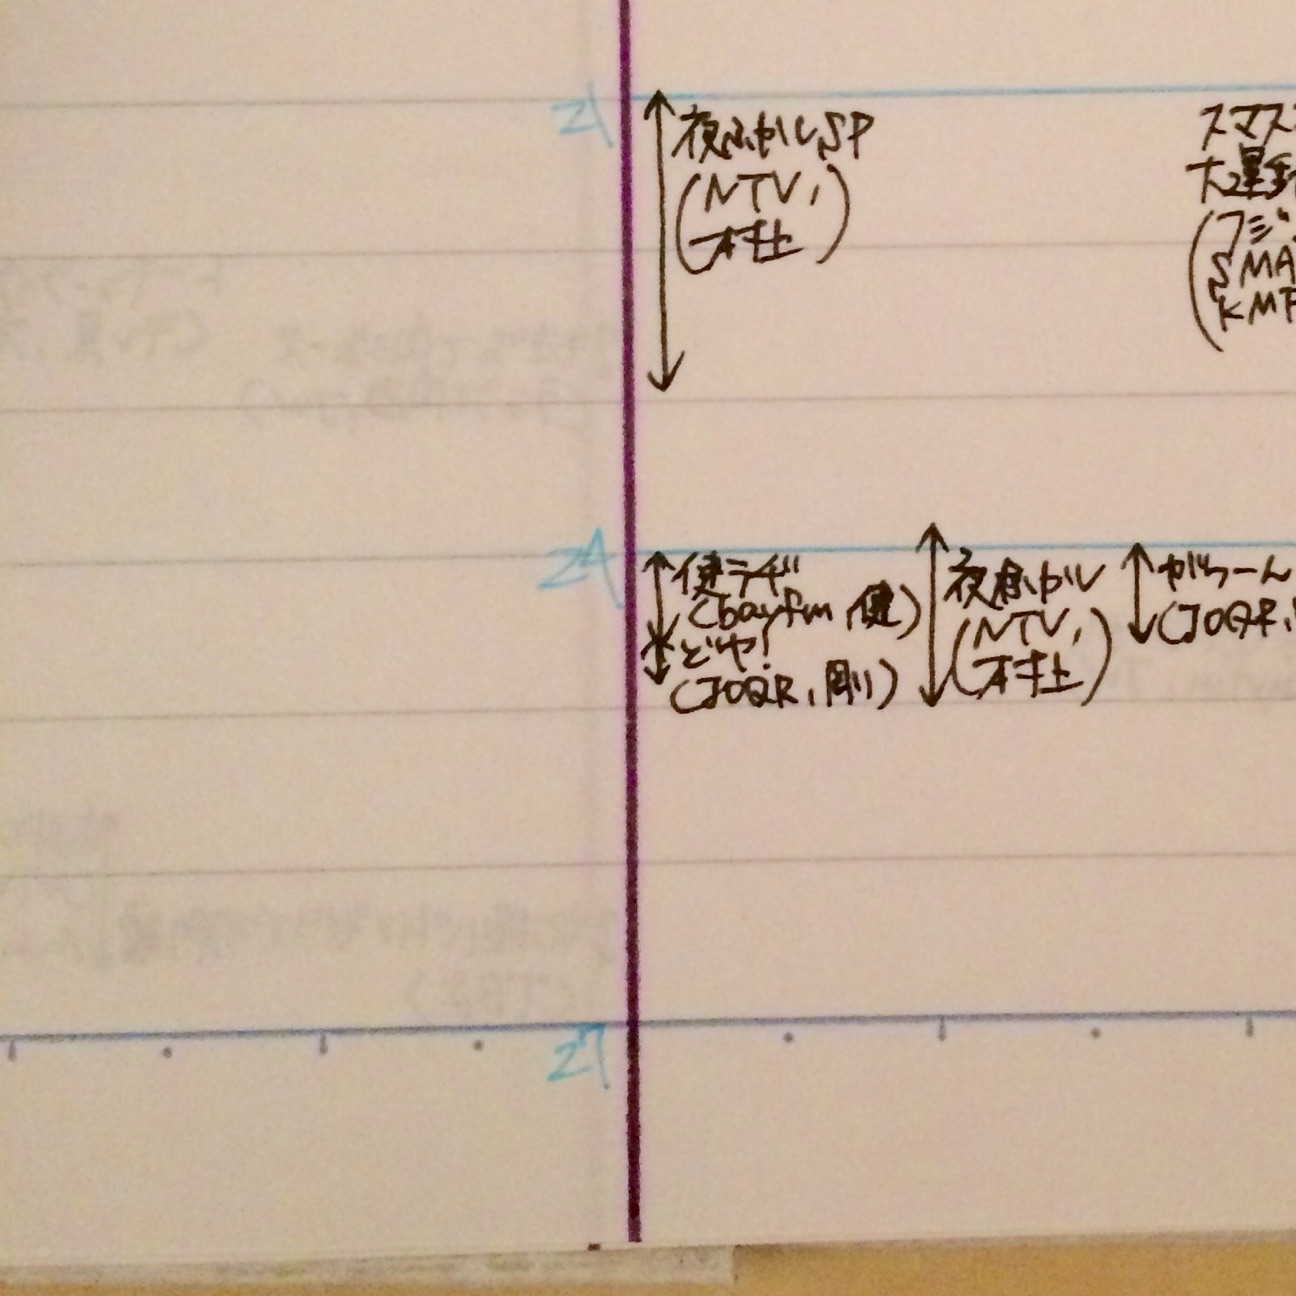 21
夜ふかしSP
(NTV,
村上)
スマス
大運動
(フジ,
SMA
KMF
24
健ラヂ
(bayfm, 健)
どヤ!
(JOQR, 剛)
夜ふかし
(NTV,
村上)
がらーん
(JOQR,
27